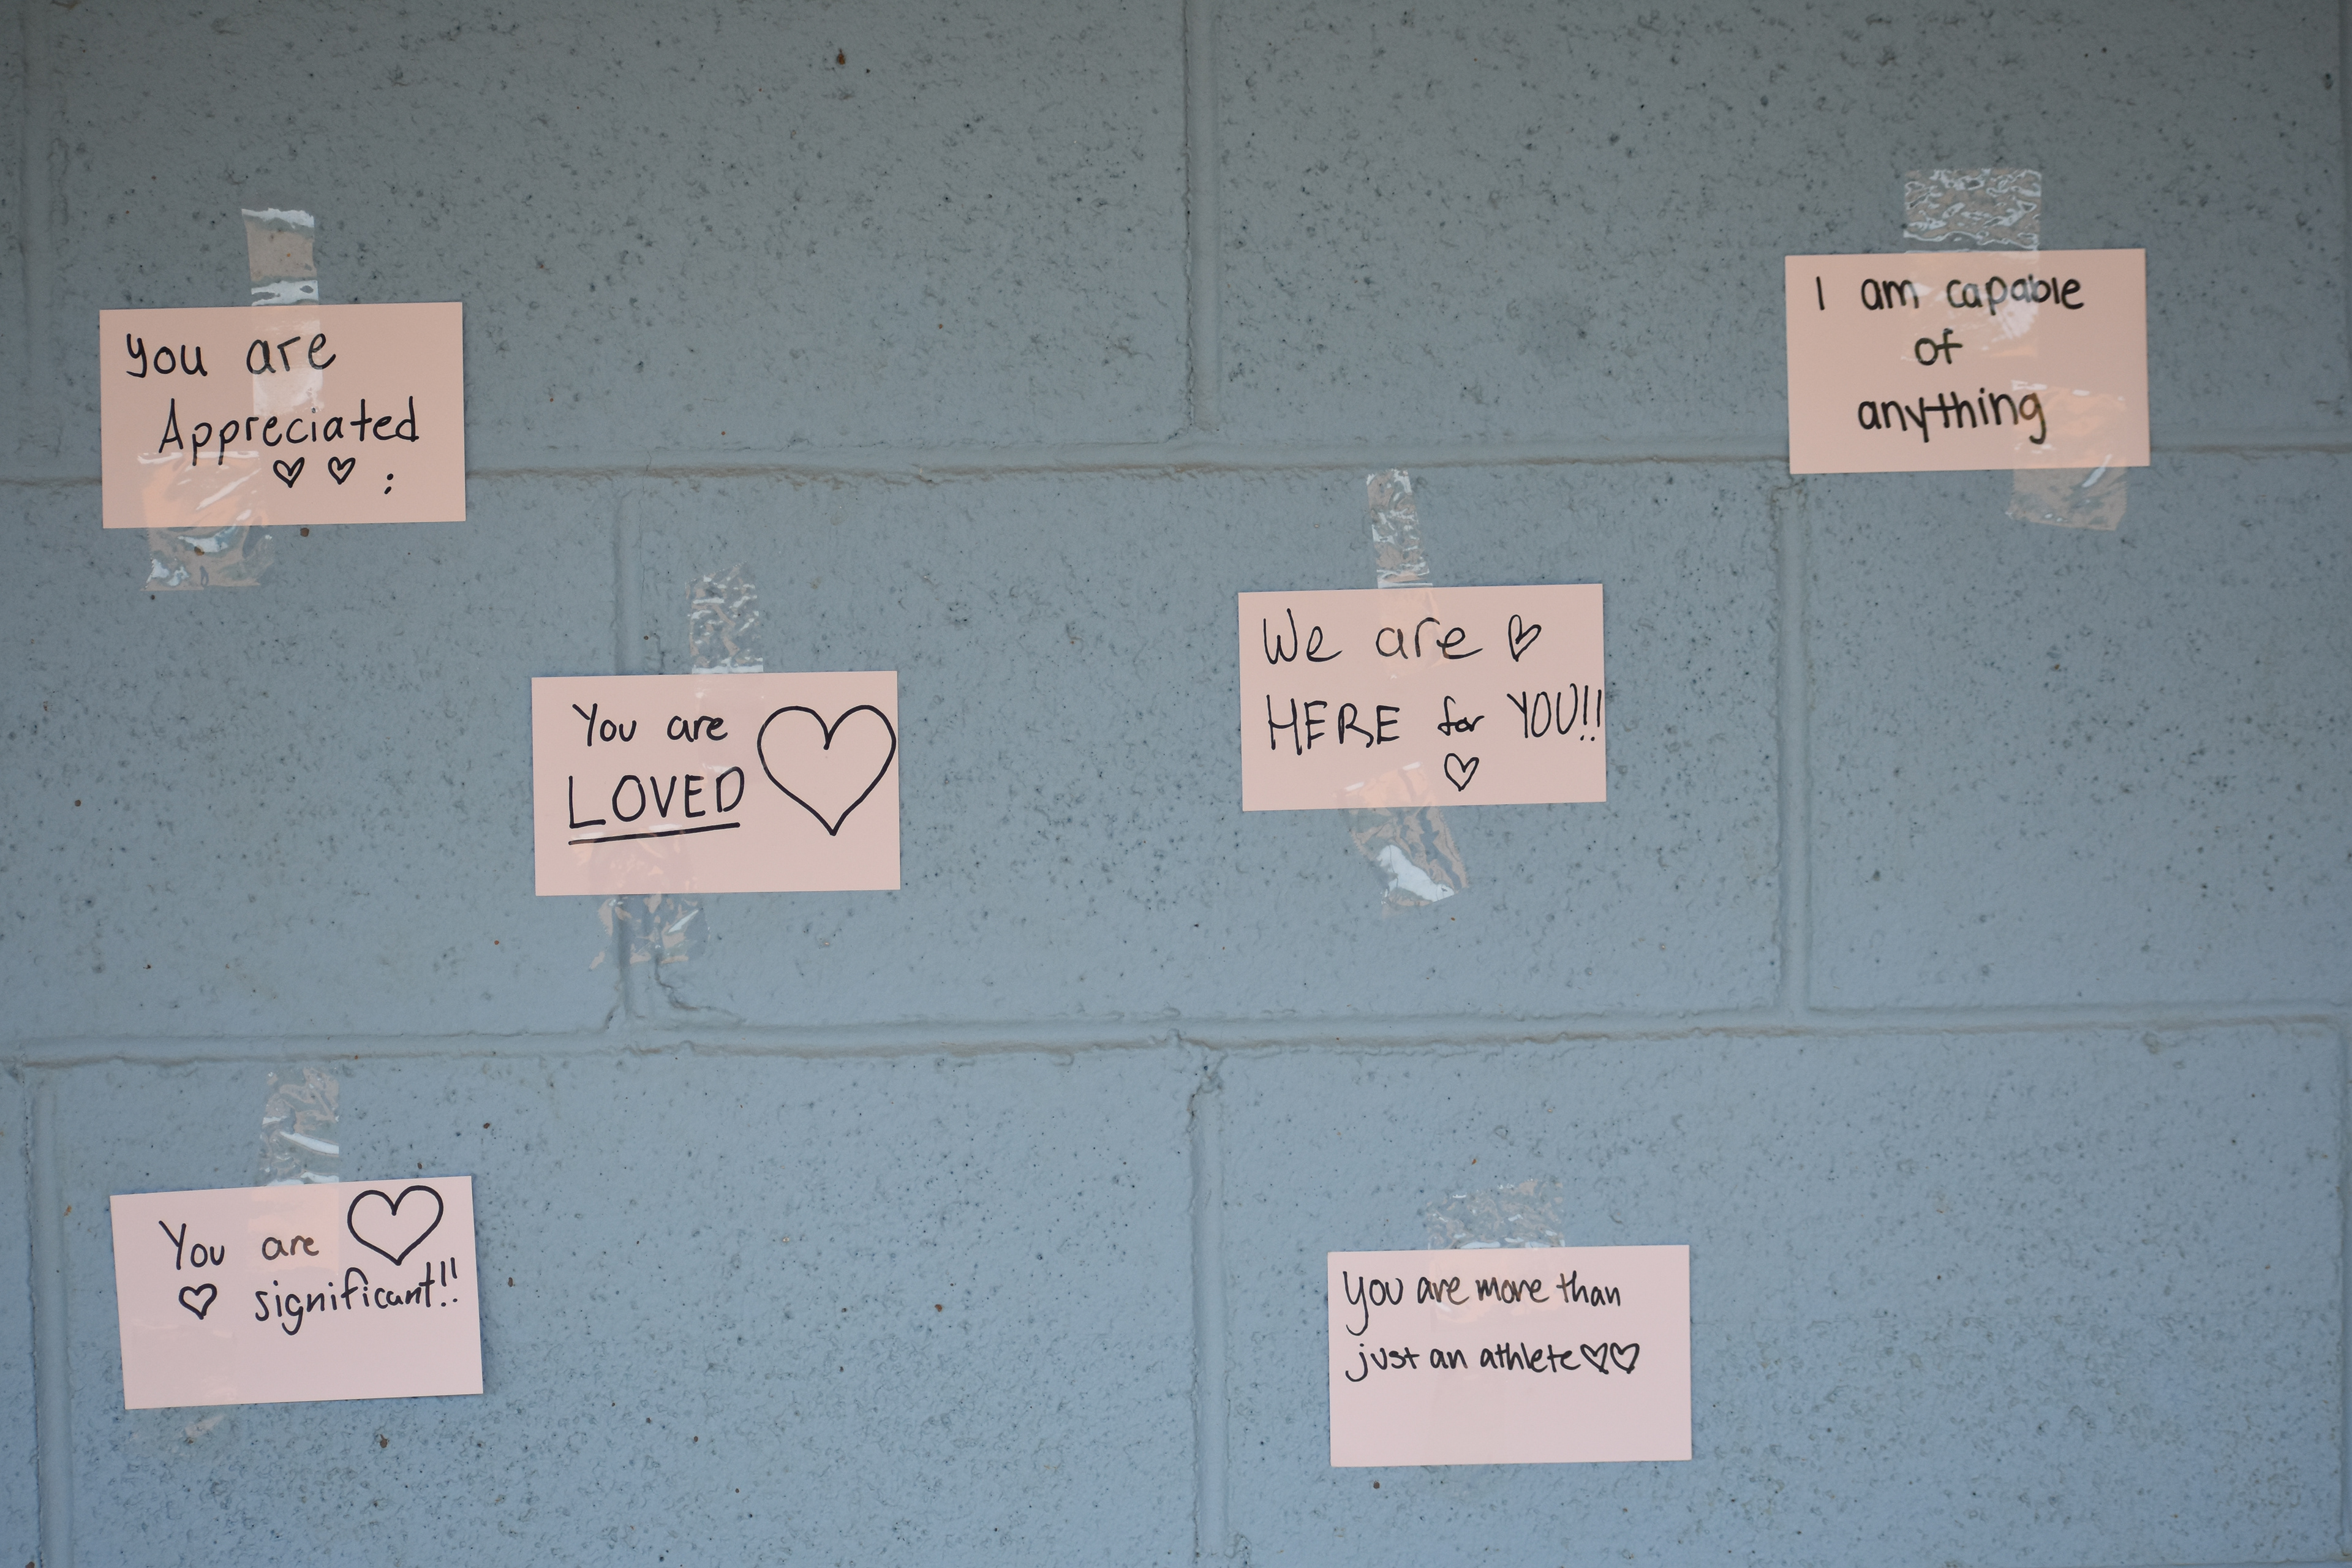 You are
Appreciated
♡ ♡ :
I am capable
of
anything
You are
LOVED ♡
We are ♡
HERE for YOU!!
♡
You are ♡
♡ significant!!
You are more than
just an athlete♡♡